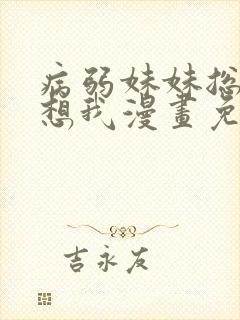 病弱妹妹总
想我漫畫免
吉永友